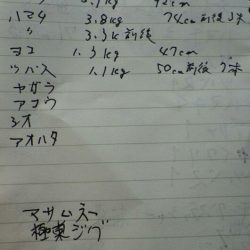 ハマチ 3.8kg 74cm前後
〃 3.3k前後
ヨコ 1.3kg 47cm
ツバス 1.1kg 50cm前後
ヤガラ
アコウ
シオ
アオハタ
マサムネ
極東ジグ